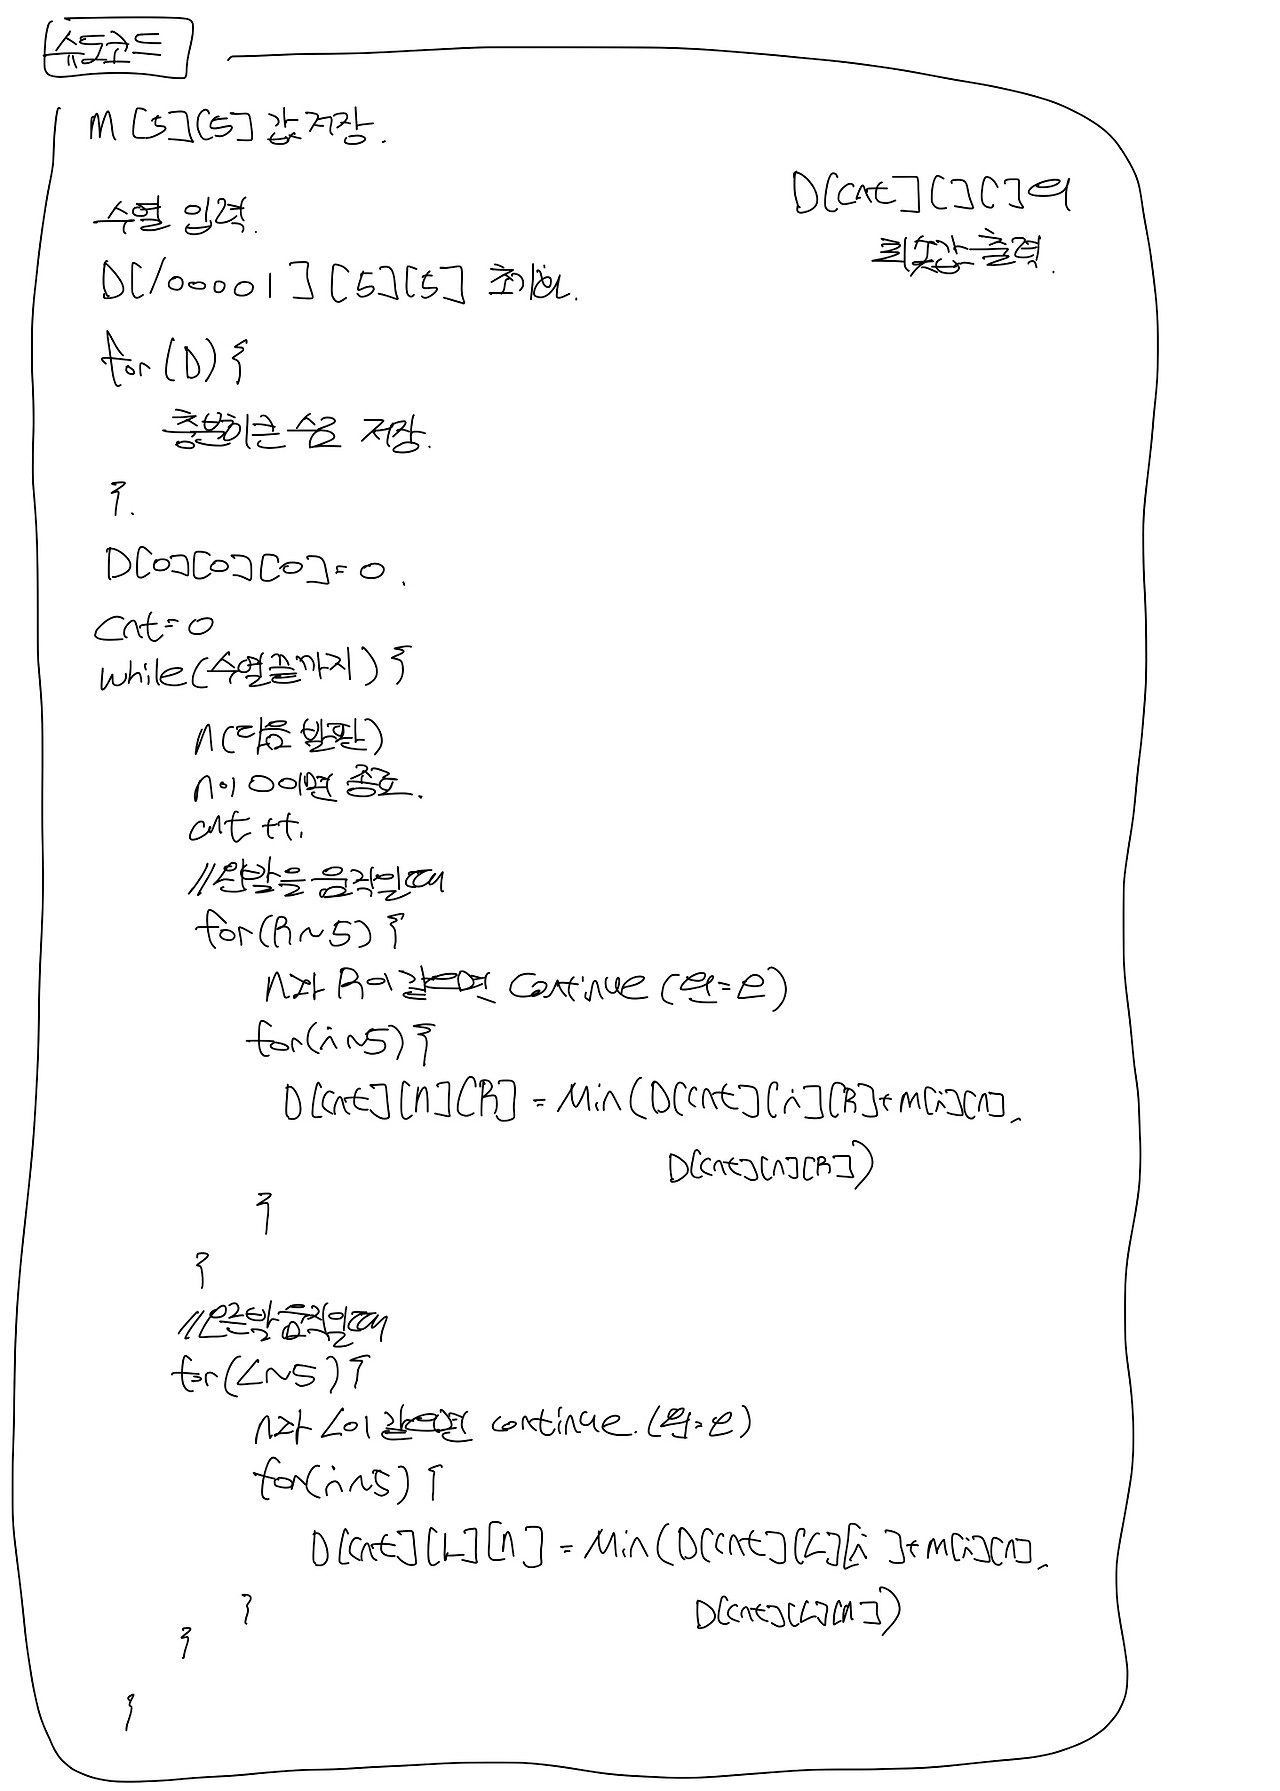 수도코드
m [5][5] 값 저장.
수열 입력.
D[100001][5][5] 초기화.
for(D){
충분히 큰 수로 저장.
}.
D[0][0][0]=0.
cnt=0
while(수열끝까지){
n(다음 발판)
n이 0이면 종료.
cnt ++.
//왼발을 움직일때
for(R~5){
n과 R이 같으면 continue (왼=오)
for(i~5){
D[cnt][n][R] = Min(D[cnt][i][R]+m[i][n],
D[cnt][n][R])
}
}
//오른발 움직일때
for(L~5){
n과 L이 같으면 continue. (왼=오)
for(i~5){
D[cnt][L][n] = Min(D[cnt][L][i]+m[i][n],
D[cnt][L][n])
}
}
}
D[cnt][][]의
최솟값 출력.